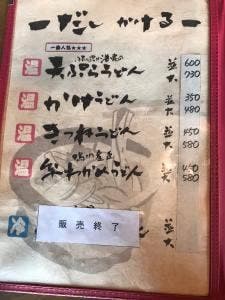 だし かける
一番人気★★★
温 天ぷらうどん 並 600
大 730
温 かけうどん 並 350
大 480
温 きつねうどん 並 450
大 580
鳴門産
温 糸わかめうどん 並 450
大 580
冷 並
大
販売終了